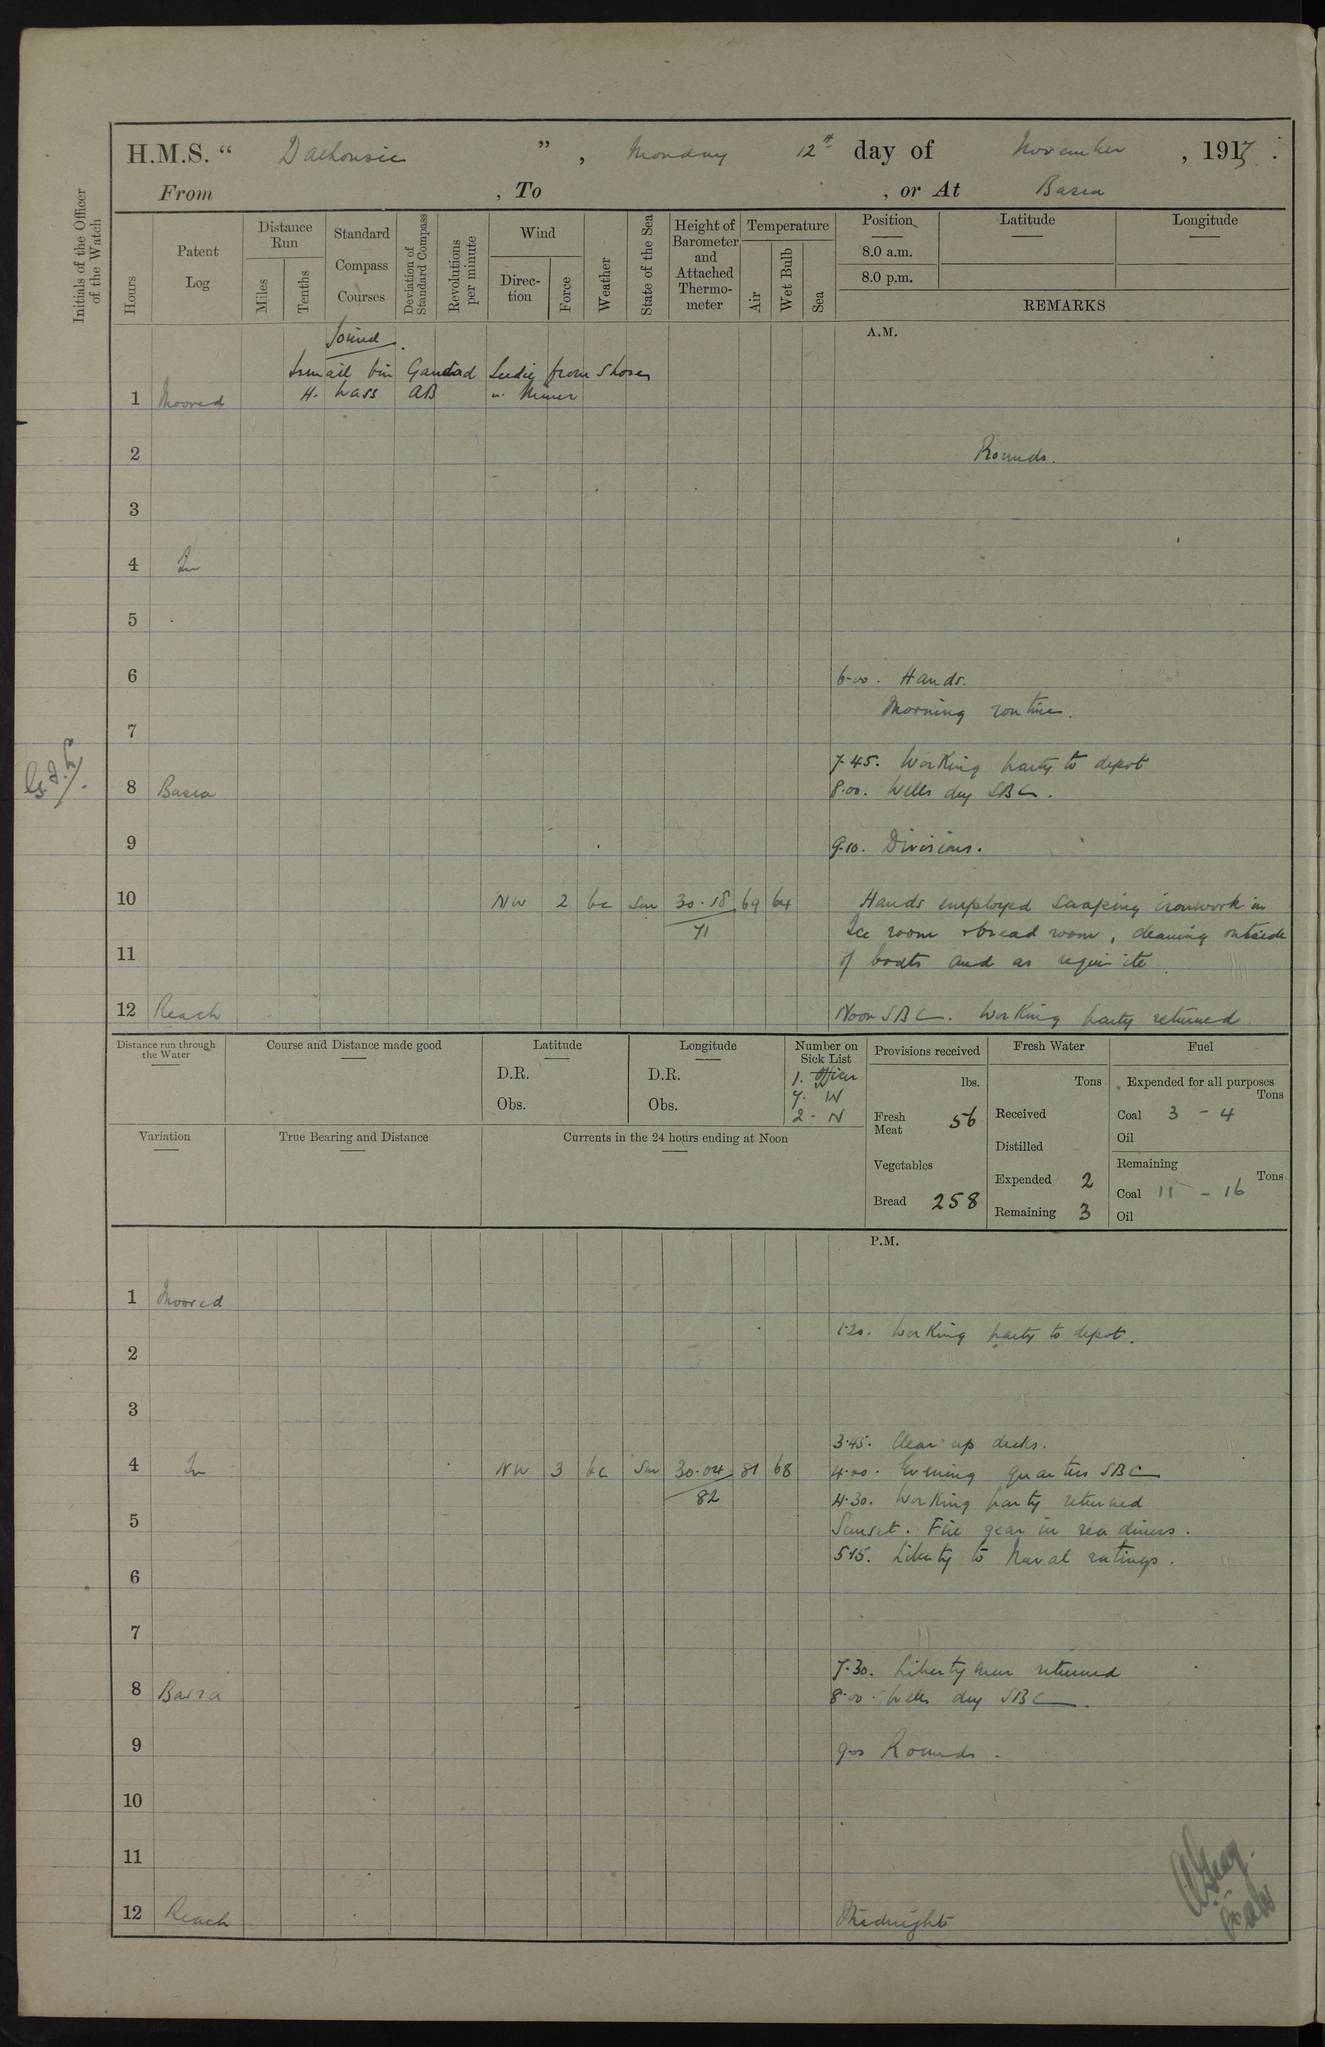 H.M.S. “ Dalhousie ” , Monday 12th day of November , 1917 .
From , To , or At Basra
Initials of the Officer of the Watch
Hours
Patent Log
Distance Run
Miles
Tenths
Standard Compass Courses
Deviation of Standard Compass
Revolutions per minute
Wind
Direction
Force
Weather
State of the Sea
Height of Barometer and Attached Thermometer
Temperature
Air
Wet Bulb
Sea
Position
8.0 a.m.
8.0 p.m.
Latitude
Longitude
REMARKS
A.M.
Joined.
Ismail bin Seedie from Shore
1 Moored H. AB " Mimer
2 Rounds.
3
4 In
5
6 6.00. Hands.
Morning routine.
7
7.45. Working party to depot
8 Basra 8.00. Wells dry SBC.
9 9.10. Divisions.
10 NW 2 bc Sm 30.18 69 64 Hands employed scraping ironwork in
71 Ice room & bread room, cleaning outside
11 of boats and as requisite
12 Reach Noon SBC. Working party returned
Distance run through the Water
Course and Distance made good
Latitude
D.R.
Obs.
Longitude
D.R.
Obs.
Number on Sick List
1. Officer
7. W
2. N
Provisions received
lbs.
Fresh Meat 56
Vegetables
Bread 258
Fresh Water
Tons
Received
Distilled
Expended 2
Remaining 3
Fuel
Expended for all purposes
Tons
Coal 3 - 4
Oil
Remaining
Tons
Coal 11 - 16
Oil
Variation
True Bearing and Distance
Currents in the 24 hours ending at Noon
P.M.
1 Moored
1.20. Working party to depot.
2
3
3.45. Clear up decks.
4 In NW 3 bc Sm 30.04 81 68 4.00. Evening quarters SBC
82 4.30. Working party returned
5 Sunset. Fire gear in readiness.
5.15. Liberty to Naval ratings.
6
7
7.30. Liberty men returned
8 Basra 8.00. Wells dry SBC.
9 9.00 Rounds.
10
11
12 Reach Midnight